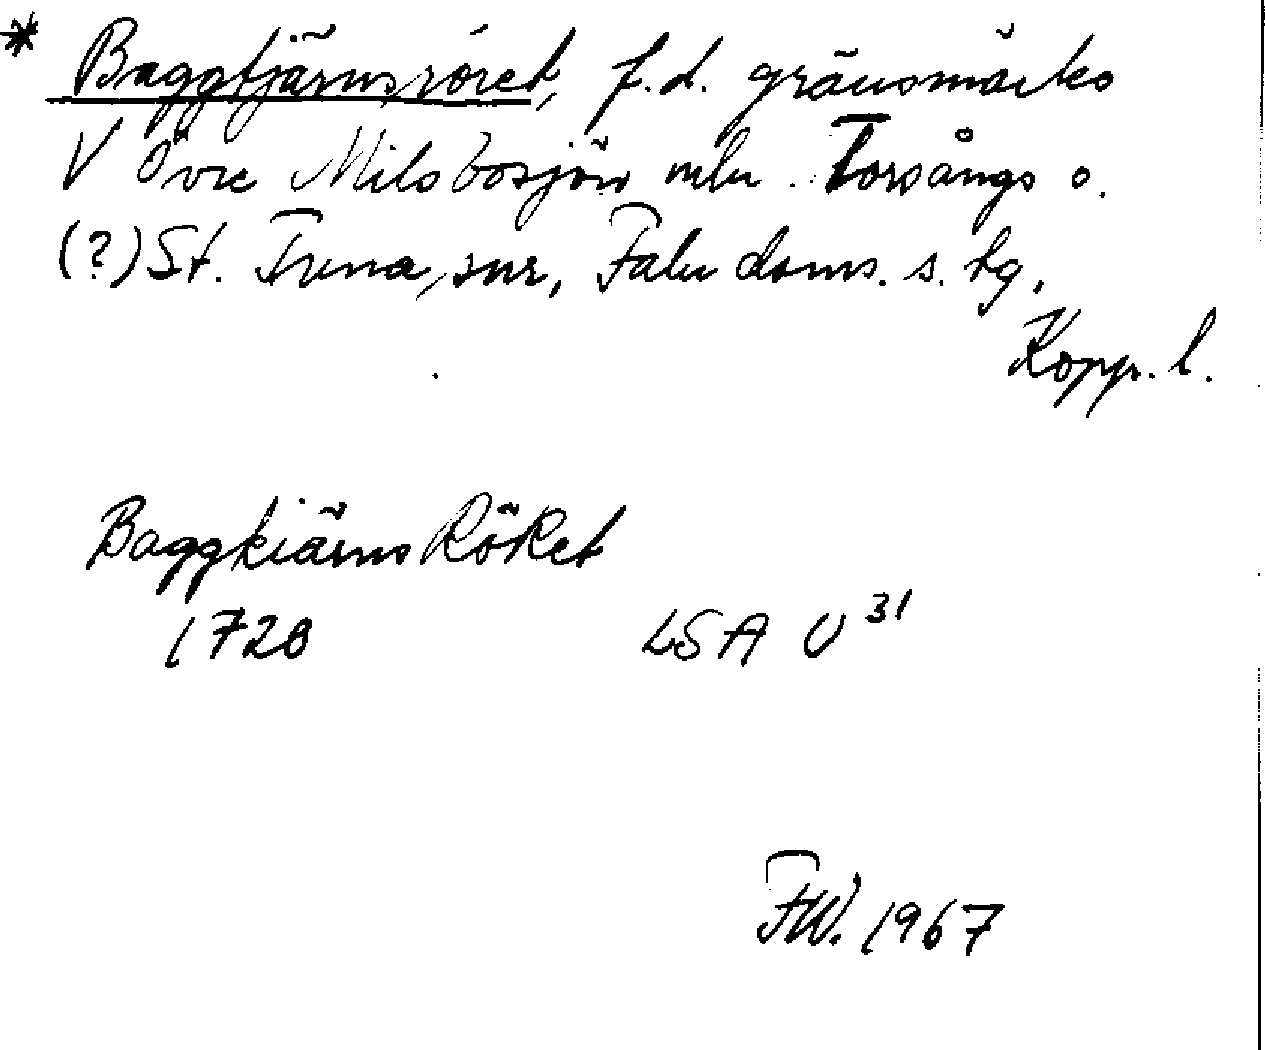 * Baggtjärnsröret, f.d. gränsmärke
V Övre Milsbosjön mln. Torsångs o.
(?) St. Tuna snr, Falu doms. s. tg,
Kopp. l.
Baggkiärns Röret
1728 LSA U 31
FW. 1967